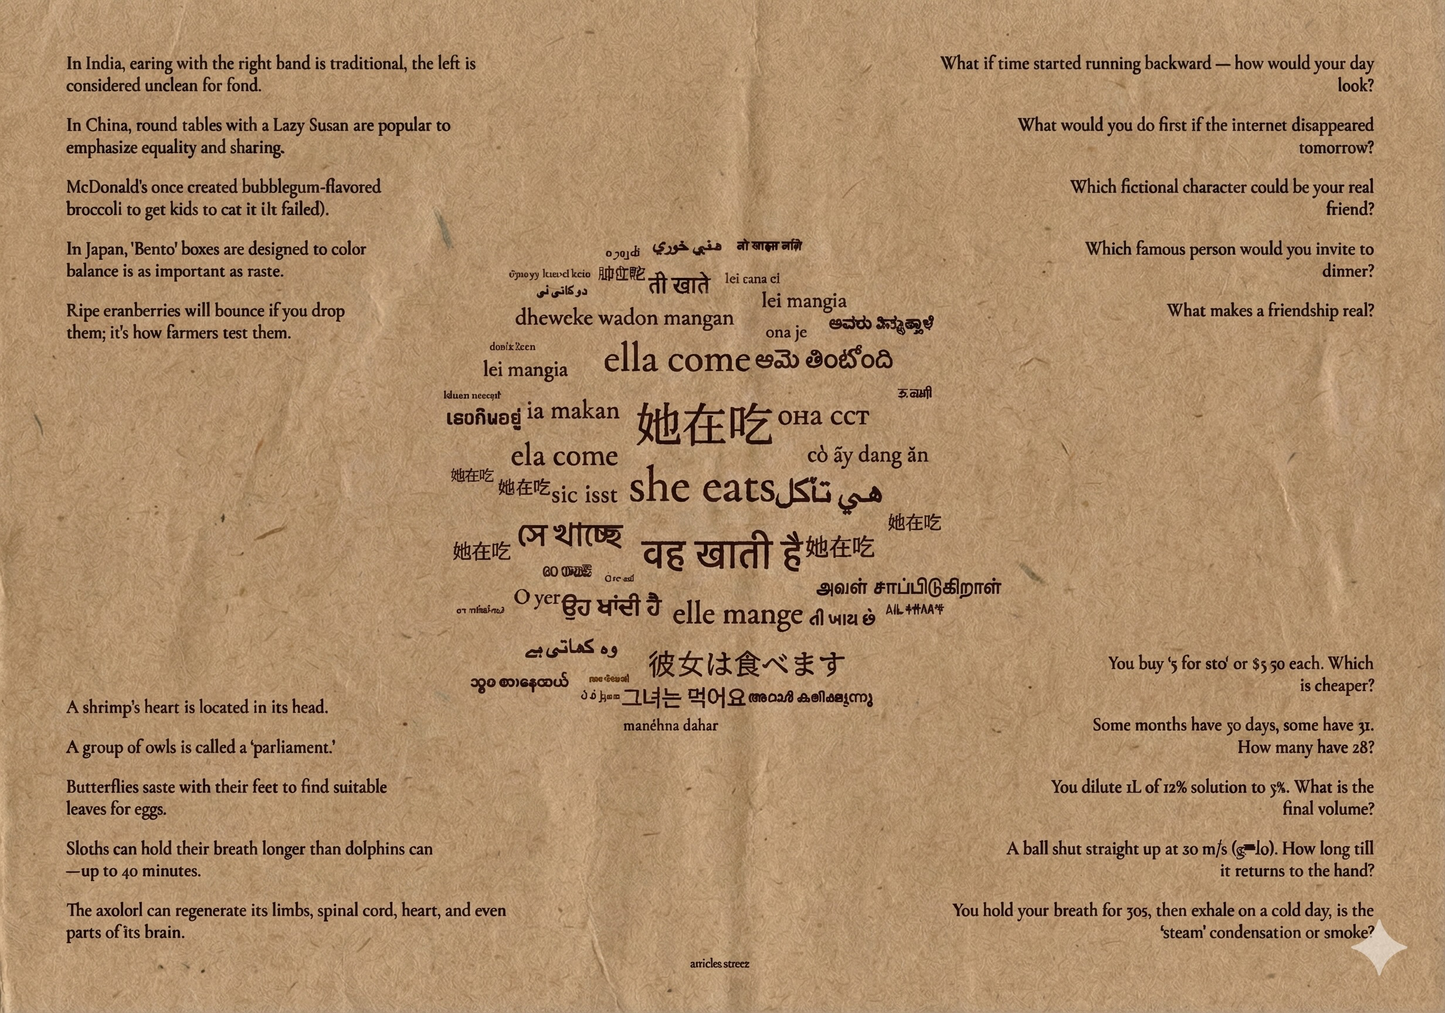 In India, earing with the right band is traditional, the left is
considered unclean for fond.
In China, round tables with a Lazy Susan are popular to
emphasize equality and sharing.
McDonald's once created bubblegum-flavored
broccoli to get kids to cat it (It failed).
In Japan, 'Bento' boxes are designed to color
balance is as important as raste.
Ripe eranberries will bounce if you drop
them; it's how farmers test them.
What if time started running backward — how would your day
look?
What would you do first if the internet disappeared
tomorrow?
Which fictional character could be your real
friend?
Which famous person would you invite to
dinner?
What makes a friendship real?
ती खाते
lei cana ci
lei mangia
dheweke wadon mangan
ona je
ella come ఆమె తింటోంది
lei mangia
ia makan 她在吃 она сст
ela come cò ãy dang ăn
她在吃 她在吃 sic isst she eats هي تأكل
她在吃
她在吃 সে খাচ্ছে वह खाती है 她在吃
அவள் சாப்பிடுகிறாள்
O yer ਉਹ ਖਾਂਦੀ ਹੈ elle mange તી ખાય છે
وہ کھاتی ہے 彼女は食べます
그녀는 먹어요
manéhna dahar
A shrimp's heart is located in its head.
A group of owls is called a 'parliament.'
Butterflies saste with their feet to find suitable
leaves for eggs.
Sloths can hold their breath longer than dolphins can
—up to 40 minutes.
The axolorl can regenerate its limbs, spinal cord, heart, and even
parts of its brain.
You buy '5 for sto' or $5 50 each. Which
is cheaper?
Some months have 50 days, some have 31.
How many have 28?
You dilute 1L of 12% solution to 5%. What is the
final volume?
A ball shut straight up at 30 m/s How long till
it returns to the hand?
You hold your breath for 30s, then exhale on a cold day, is the
'steam' condensation or smoke?
arricles streez